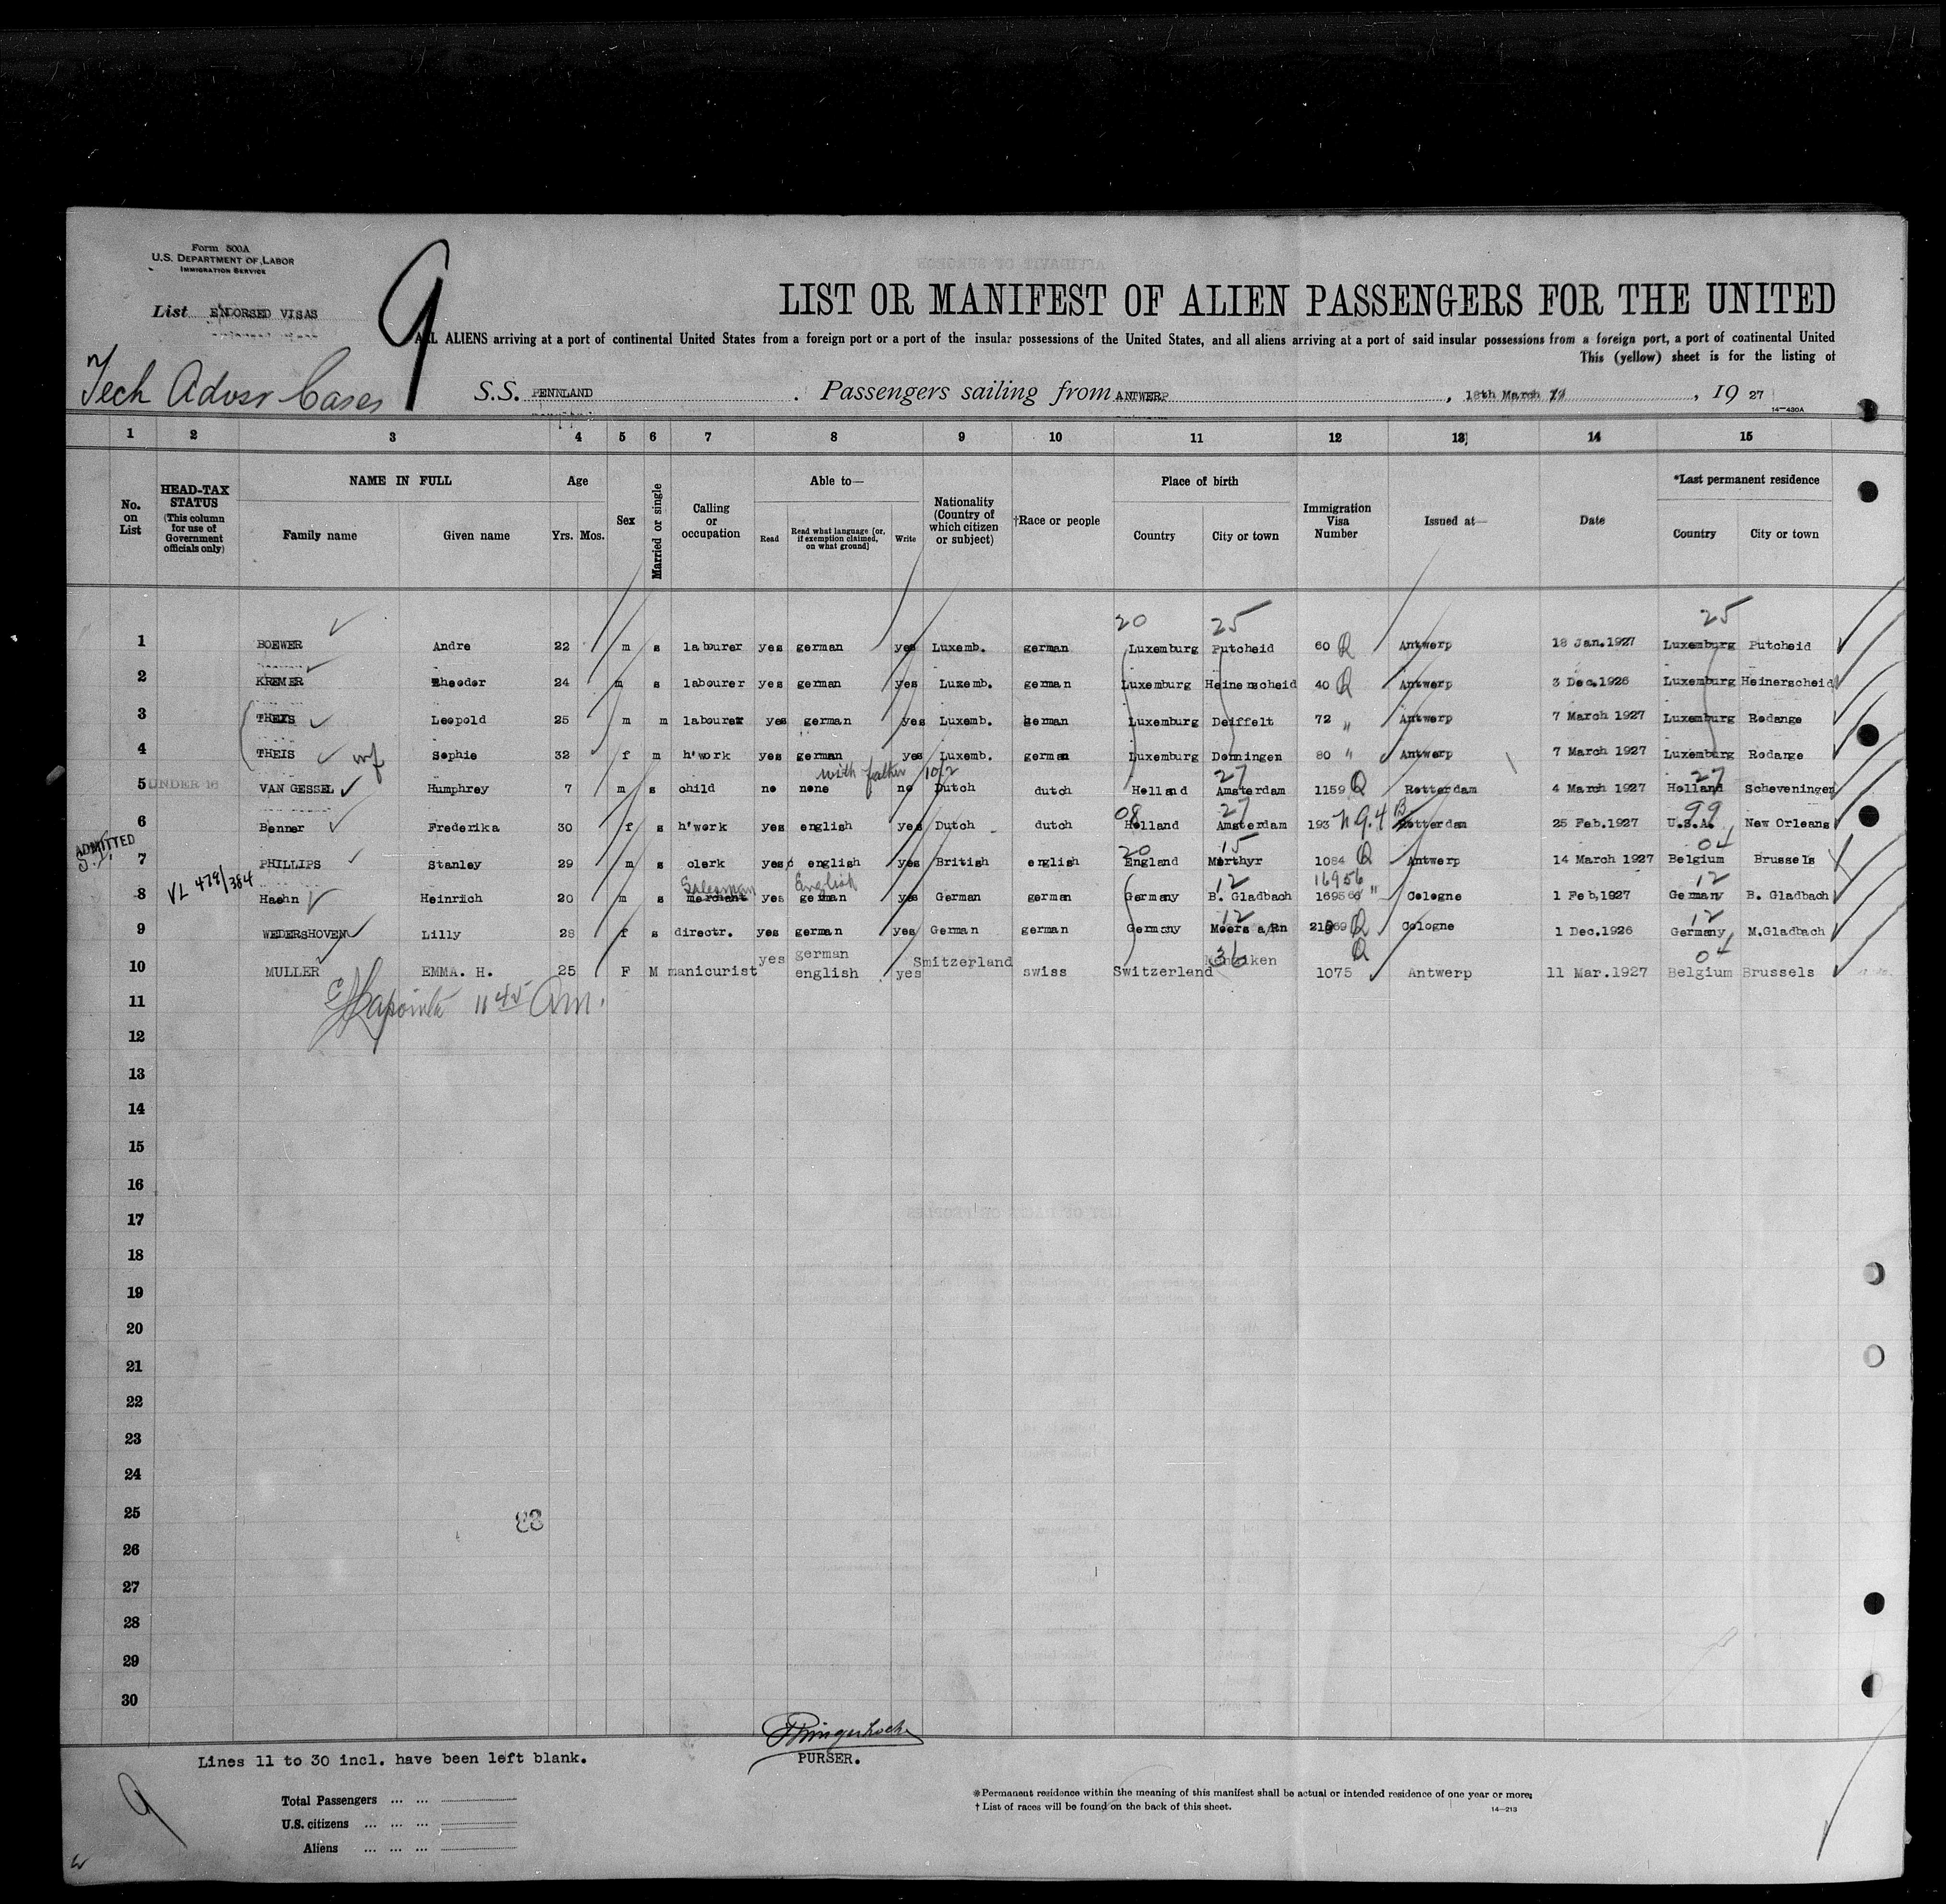 Form 500A
U.S. DEPARTMENT OF LABOR
IMMIGRATION SERVICE
List ENDORSED VISAS
9
Tech Advsr Cases
LIST OR MANIFEST OF ALIEN PASSENGERS FOR THE UNITED
ALL ALIENS arriving at a port of continental United States from a foreign port or a port of the insular possessions of the United States, and all aliens arriving at a port of said insular possessions from a foreign port, a port of continental United
This (yellow) sheet is for the listing of
S.S. PENNLAND . Passengers sailing from ANTWERP , 18th March , 19 27
14—430A
1 2 3 4 5 6 7 8 9 10 11 12 13 14 15
No. on List
HEAD-TAX STATUS (This column for use of Government officials only)
NAME IN FULL Family name Given name
Age Yrs. Mos.
Sex
Married or single
Calling or occupation
Able to— Read Read what language [or, if exemption claimed, on what ground] Write
Nationality (Country of which citizen or subject)
†Race or people
Place of birth Country City or town
Immigration Visa Number
Issued at—
Date
*Last permanent residence Country City or town
20 25 25
1 BOEWER Andre 22 m s labourer yes german yes Luxemb. german Luxemburg Putcheid 60 Q Antwerp 18 Jan.1927 Luxemburg Putcheid
2 KREMER Theodor 24 m s labourer yes german yes Luxemb. german Luxemburg Heinerscheid 40 Q Antwerp 3 Dec.1926 Luxemburg Heinerscheid
3 THEIS Leopold 25 m m labourer yes german yes Luxemb. german Luxemburg Deiffelt 72 " Antwerp 7 March 1927 Luxemburg Rodange
4 THEIS wf Sophie 32 f m h'work yes german yes Luxemb. german Luxemburg Donningen 80 " Antwerp 7 March 1927 Luxemburg Rodange
with father 10/2 27 27
5 UNDER 16 VAN GESSEL Humphrey 7 m s child no none no Dutch dutch Holland Amsterdam 1159 Q Rotterdam 4 March 1927 Holland Scheveningen
08 27 99
6 Benner Frederika 30 f s h'work yes english yes Dutch dutch Holland Amsterdam 193 N Q. 4 B Rotterdam 25 Feb.1927 U.S.A. New Orleans
ADMITTED
S.I.
20 15 04
7 PHILLIPS Stanley 29 m s clerk yes english yes British english England Merthyr 1084 Q Antwerp 14 March 1927 Belgium Brussels
VL 478/384 Salesman English 12 16956 12
8 Haehn Heinrich 20 m s merchant yes german yes German german Germany B. Gladbach 169566 " Cologne 1 Feb,1927 Germany B. Gladbach
12 12
9 WEDERSHOVEN Lilly 28 f s directr. yes german yes German german Germany Moers a/Rn 21969 Q Cologne 1 Dec.1926 Germany M.Gladbach
36 Q 04
10 MULLER EMMA. H. 25 F M manicurist yes german english yes Smitzerland swiss Switzerland 1075 Antwerp 11 Mar.1927 Belgium Brussels
11 11 45 Am.
12
13
14
15
16
17
18
19
20
21
22
23
24
25
26
27
28
29
30
Lines 11 to 30 incl. have been left blank.
PURSER.
9
Total Passengers ... ...
U.S. citizens ... ... ...
Aliens ... ... ...
*Permanent residence within the meaning of this manifest shall be actual or intended residence of one year or more.
† List of races will be found on the back of this sheet.
14—213